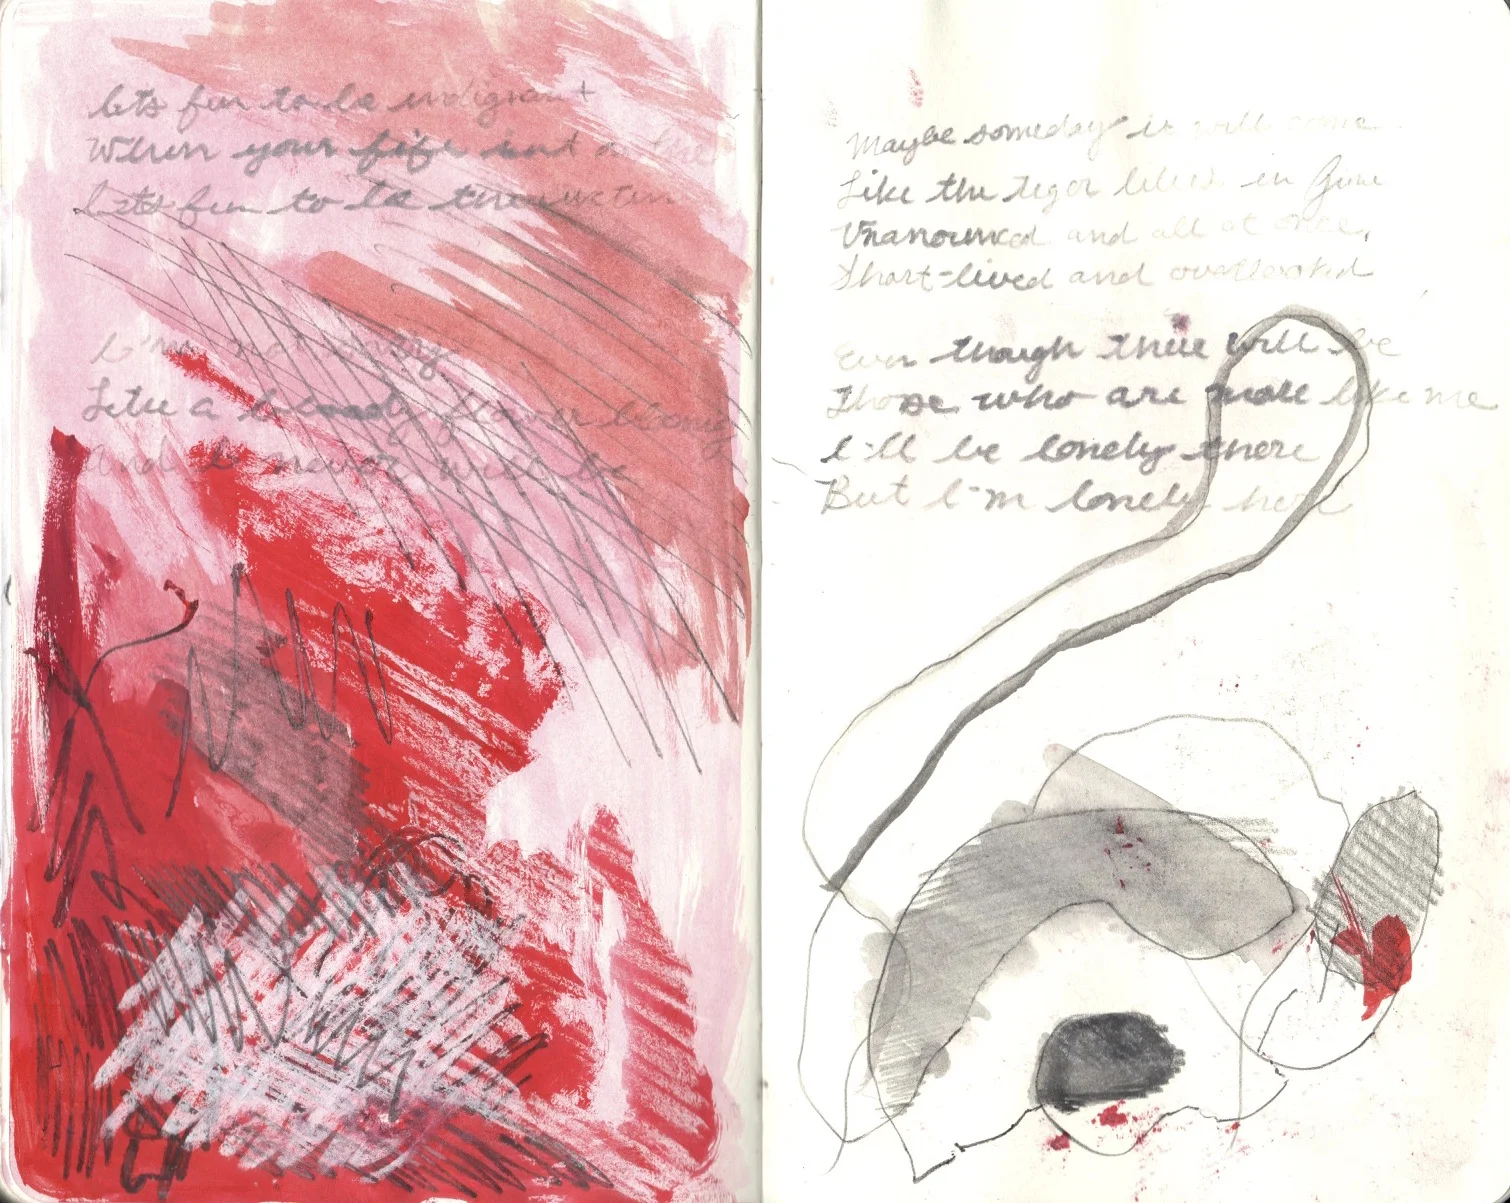 lets fun to be indignant
When your life isnt on the
lets fun to be
I'm not sorry
Like a bloody flower blooms
And I never will be
Maybe someday it will come
Like the tiger lilies in June
Unanounced and all at once,
Short-lived and overlooked
Even though there will be
Those who are more like me
I'll be lonely there
But I'm lonely here